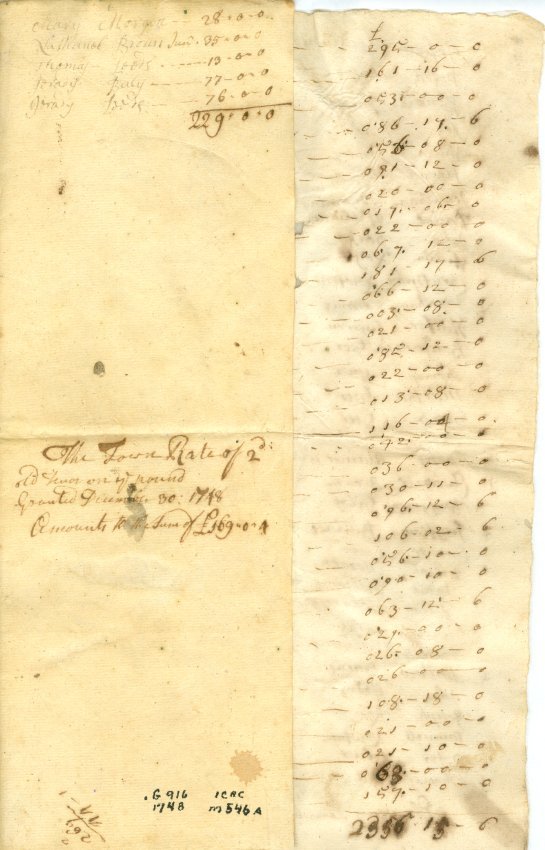 Mary Morgan - 28-0-0
Nathanel Brown Junr. 35-0-0
Thomas - 13-0-0
- 77-0-0
- 76-0-0
229-0-0
The Town Rate of 2d:
old Tenor on ye pound
Granted December 30: 1748
Amounts to the Sum of £169-0-1
.G 916 ICRC
1748 M546A
£
295-0-0
161-16-0
053-00-0
086-17-6
056-08-0
091-12-0
020-00-0
017-06-0
022-00-0
067-12-0
181-17-6
066-12-0
003-08-0
021-00-0
032-12-0
022-00-0
013-08-0
116-00-0
072-00-0
036-00-0
030-11-0
096-12-6
106-02-6
056-10-0
090-10-0
063-12-6
027-00-0
026-08-0
026-00-0
108-18-0
021-00-0
021-10-0
063-00-0
157-10-0
2356-15-6